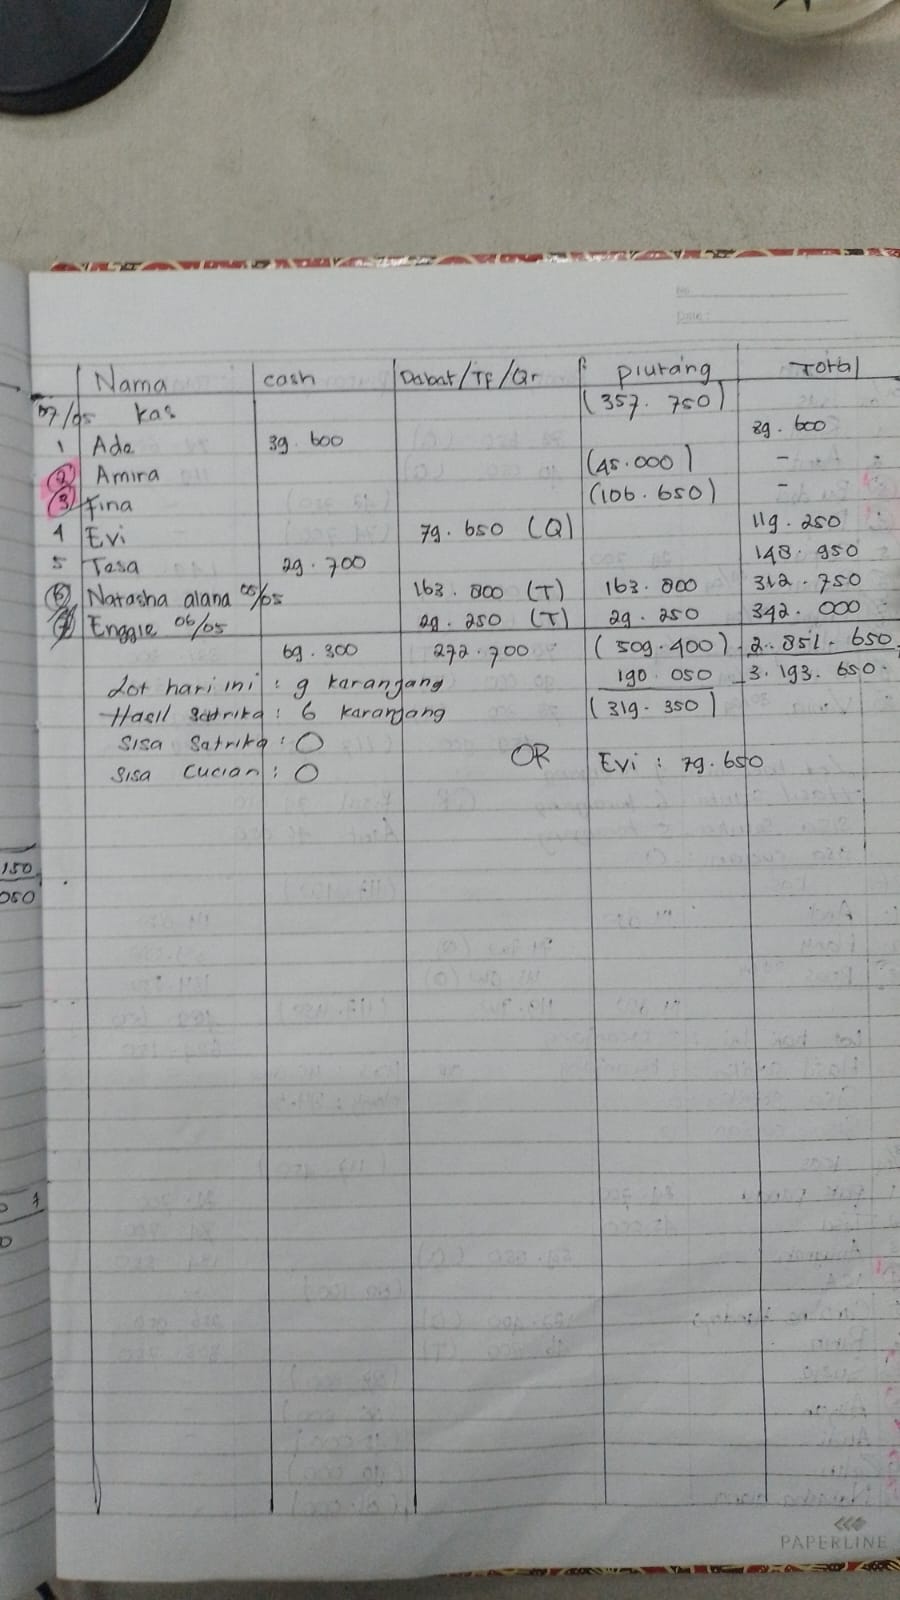 No.
Date:
Nama cash Dabat/TF/Qr piutang Total
07/05 kas (357.750)
1 Ade 39.600 39.600
2 Amira (45.000) -
3 Fina (106.650) -
4 Evi 79.650 (Q) 119.250
5 Tasa 29.700 148.950
6 Natasha alana 05/05 163.800 (T) 163.800 312.750
7 Enggie 06/05 29.250 (T) 29.250 342.000
69.300 272.700 (509.400) 2.851.650
Lot hari ini : 9 karangang 190.050 3.193.650
Hasil satrika : 6 karangang (319.350)
Sisa Satrika : 0
QR Evi : 79.650
Sisa Cucian : 0
150
050
PAPERLINE